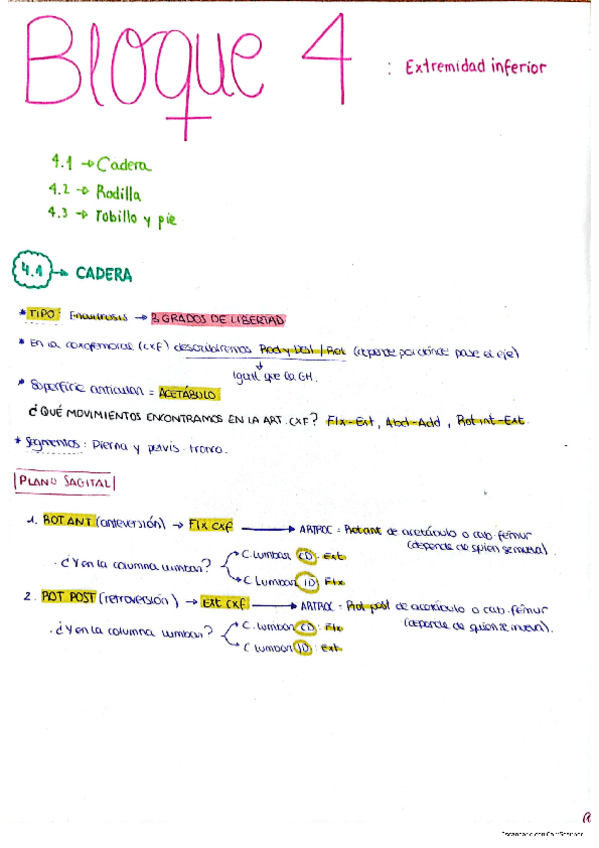 Bloque 4 : Extremidad inferior
4.1 → Cadera
4.2 → Rodilla
4.3 → Tobillo y pie
4.1 → CADERA
* TIPO: Enartrosis → 3 GRADOS DE LIBERTAD
* En la coxofemoral (cxf) describiremos Rod y Desl / Rot (depende por dónde pase el eje)
↓
Igual que la GH.
* Superficie articular = ACETÁBULO
¿QUÉ MOVIMIENTOS ENCONTRAMOS EN LA ART. CXF? Flx-Ext, Abd-Add, Rot int-Ext.
* Segmentos: Pierna y pelvis-tronco.
PLANO SAGITAL
1. ROT ANT (anteversión) → Flx cxf → ARTROC = Rot ant de acetábulo o cab. fémur
(depende de quien se mueva).
. ¿Y en la columna lumbar? C. Lumbar CD: Ext
C Lumbar ID: Flx
2. ROT POST (retroversión) → Ext cxf → ARTROC = Rot post de acetábulo o cab. fémur
(depende de quien se mueva).
. ¿Y en la columna lumbar? C. Lumbar CD: Flx
C Lumbar ID: Ext
Escaneado con CamScanner